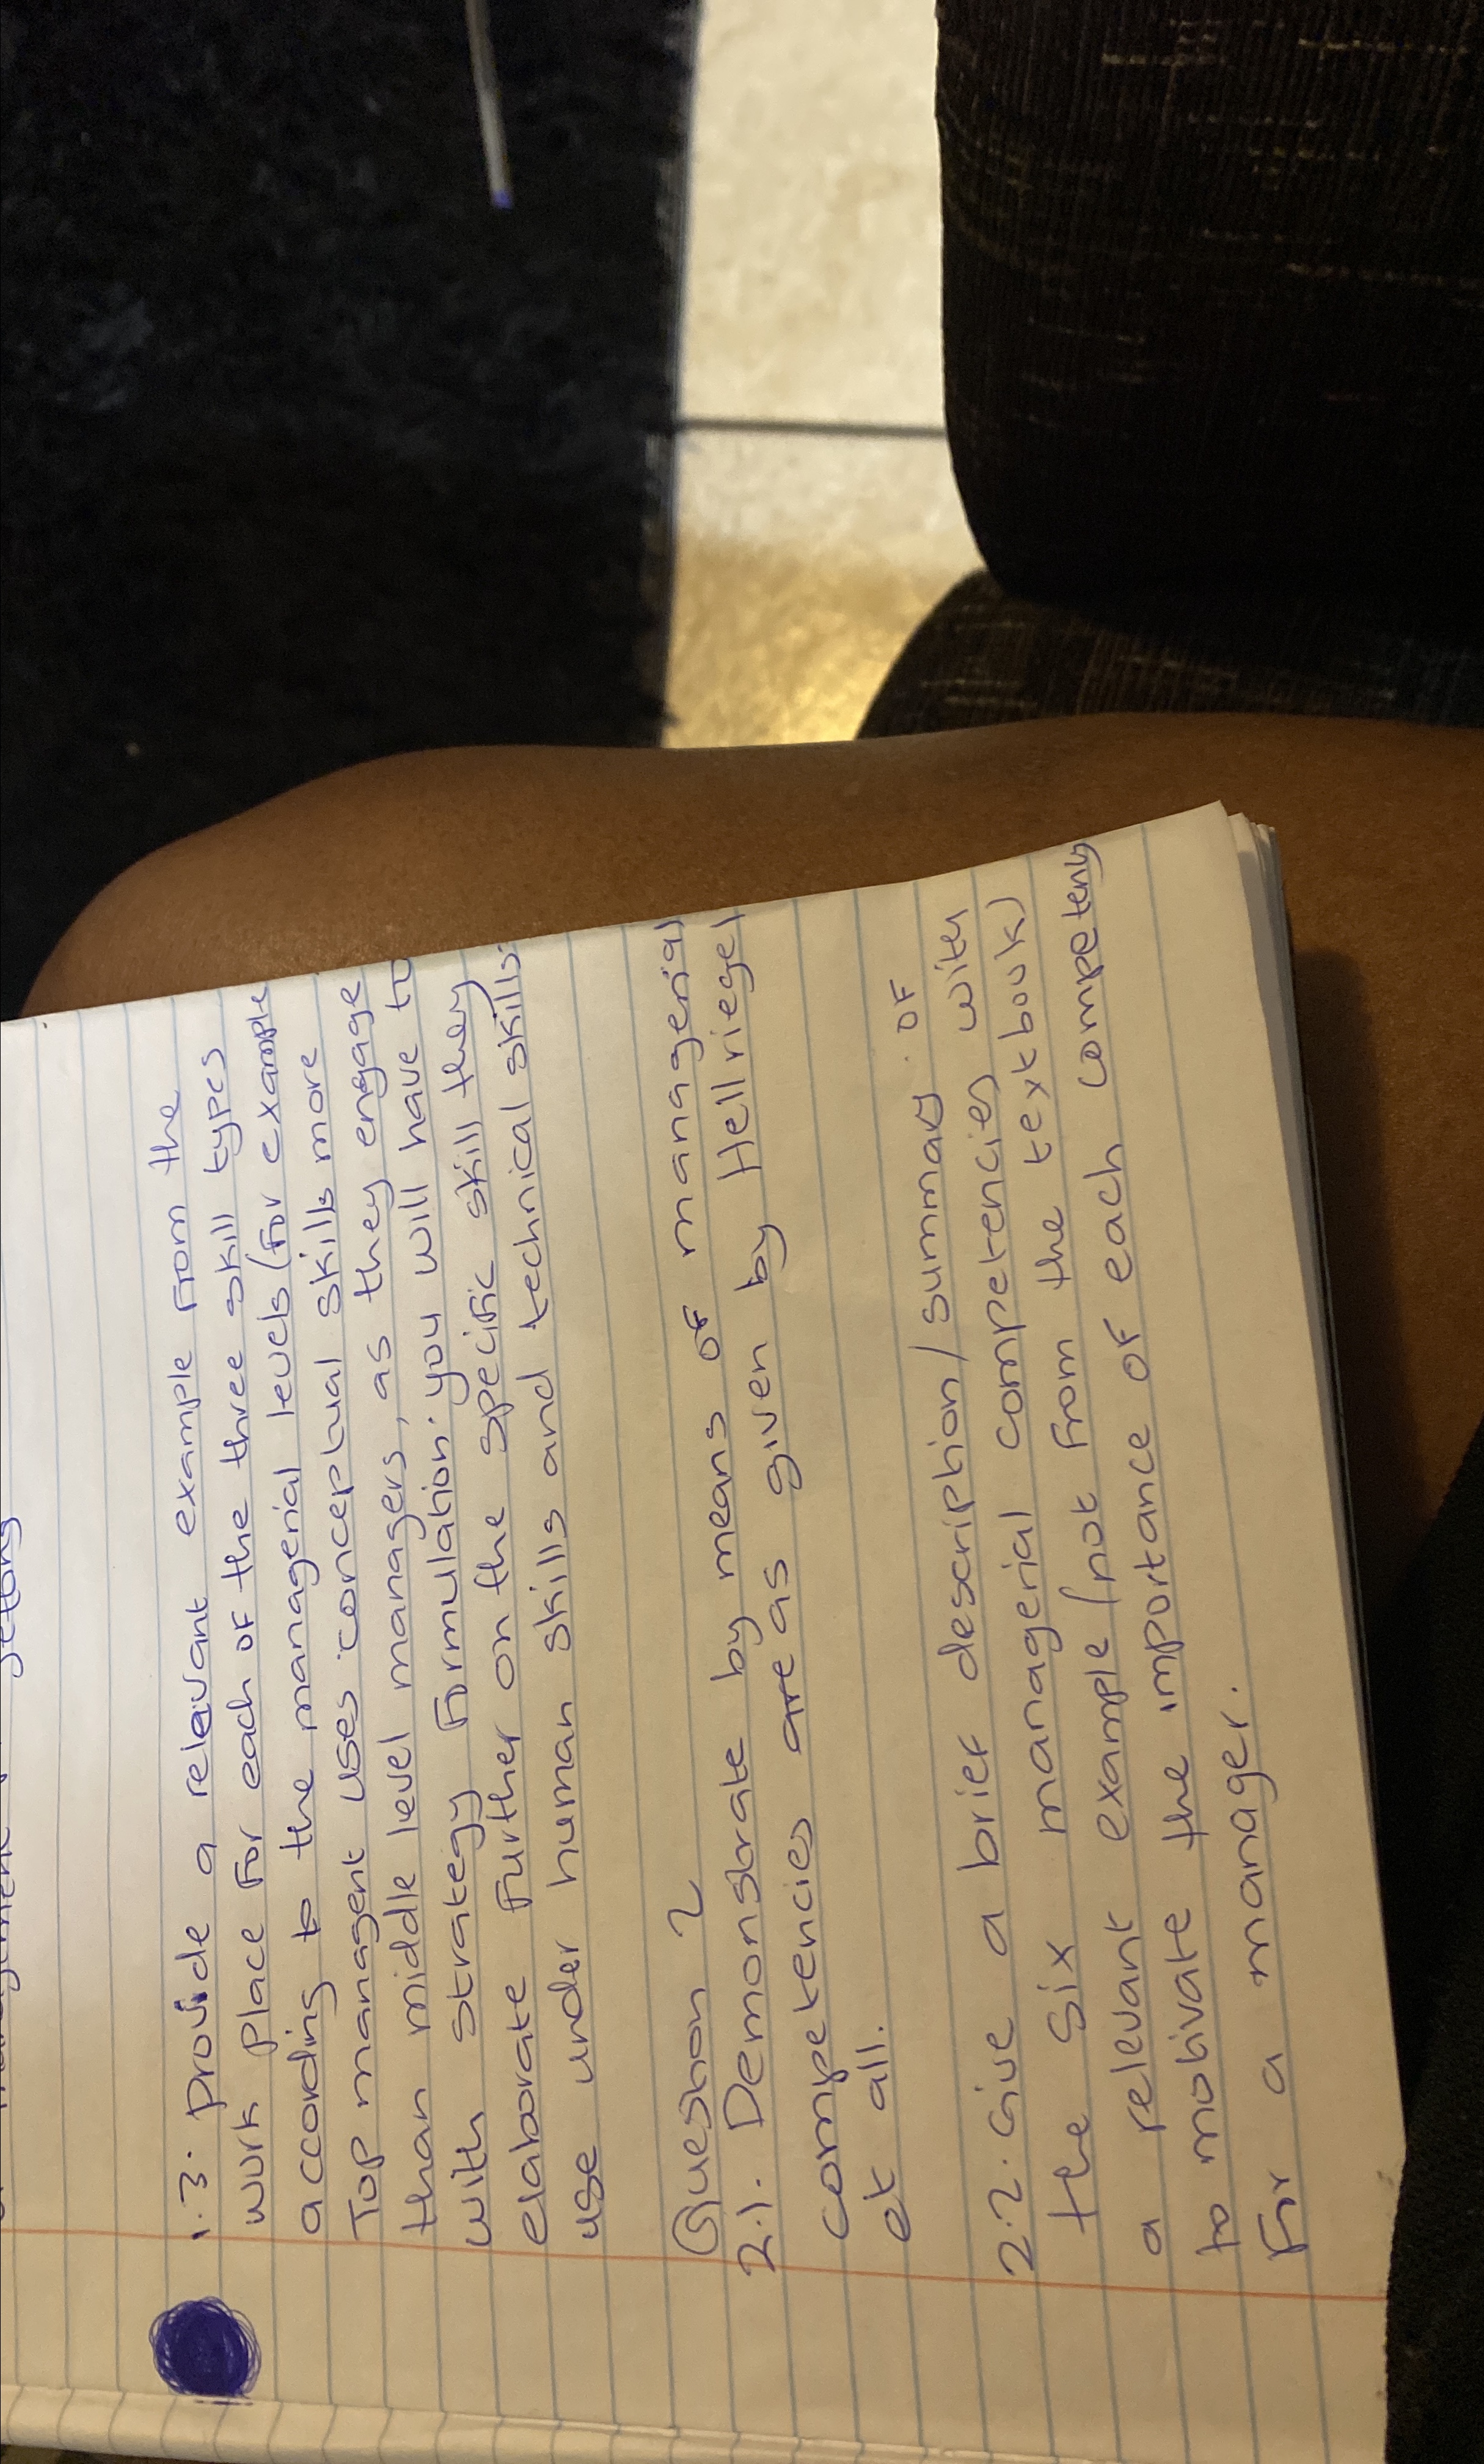 1.3. provide a relevant example from the
work place for each of the three skill types
according to the managerial levels (for example
Top managent uses conceptual skills more
than middle level managers, as they engage
with strategy formulation. you will have to
elaborate further on the specific skill they
use under human skills and technical skills.
Question 2
2.1. Demonstrate by means of managerial
competencies are as given by Hellriegel
et all.
2.2. Give a brief description/summary of
the six managerial competencies with
a relevant example (not from the textbook)
to motivate the importance of each competeny
For a manager.